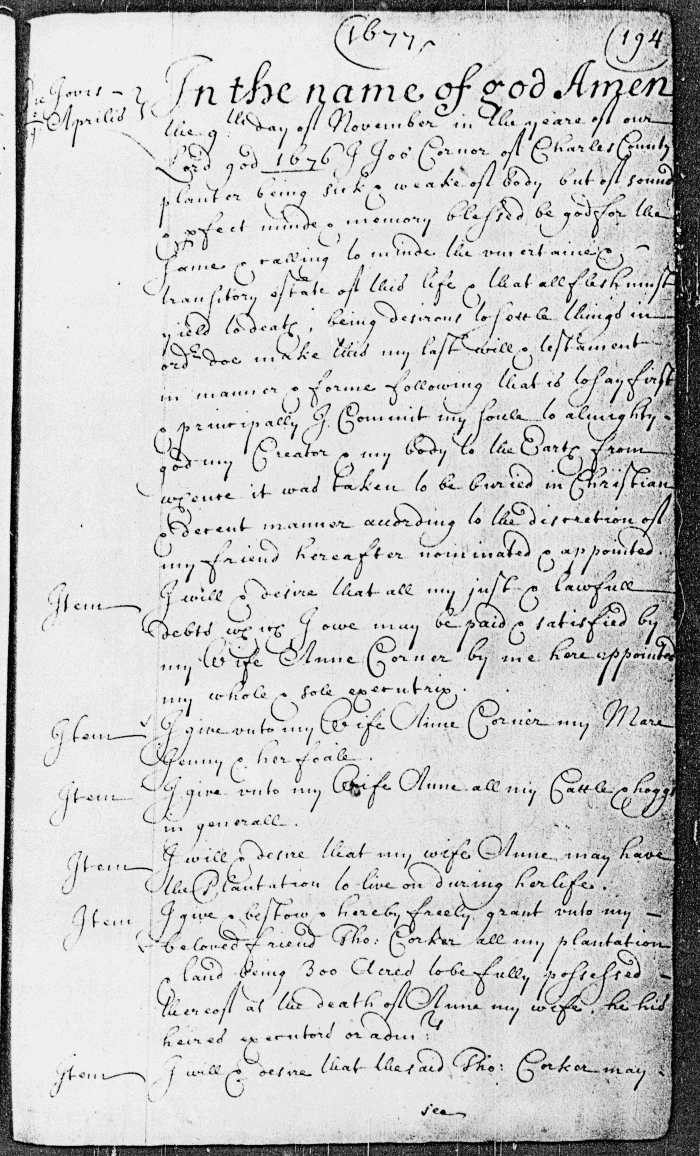 1677
194
Jovis
Aprilis
In the name of god Amen
the 9th day of November in the yeare of our
Lord god 1676 I Jos Cornor of Charles County
planter being sick & weake of body but of sound
& pfect minde & memory blessed be god for the
same & calling to minde the uncertaine &
transitory estate of this life & that all flesh must
yield to death; being desirous to settle things in
ordr doe make this my last will & testament
in manner & forme following that is to say first
& principally I Commit my soule to almighty
god my Creator & my body to the Earth from
whence it was taken to be buried in Christian
& decent manner according to the discretion of
my friend hereafter nominated & appointed.
Item I will & desire that all my just & lawfull
debts I owe may be paid & satisfied by
my Wife Anne Corner by me here appointed
my whole & sole executrix.
Item I give unto my Wife Anne Corner my Mare
Jenny & her foale.
Item I give unto my Wife Anne all my Cattle & hoggs
in generall.
Item I will & desire that my wife Anne may have
the Plantation to live on during her life.
Item I give & bestow & hereby freely grant unto my
beloved friend Tho: Corker all my plantation
& land being 300 Acres to be fully possessed
thereof at the death of Anne my wife, he his
heires executors or admrs
Item I will & desire that the said Tho: Corker may
see